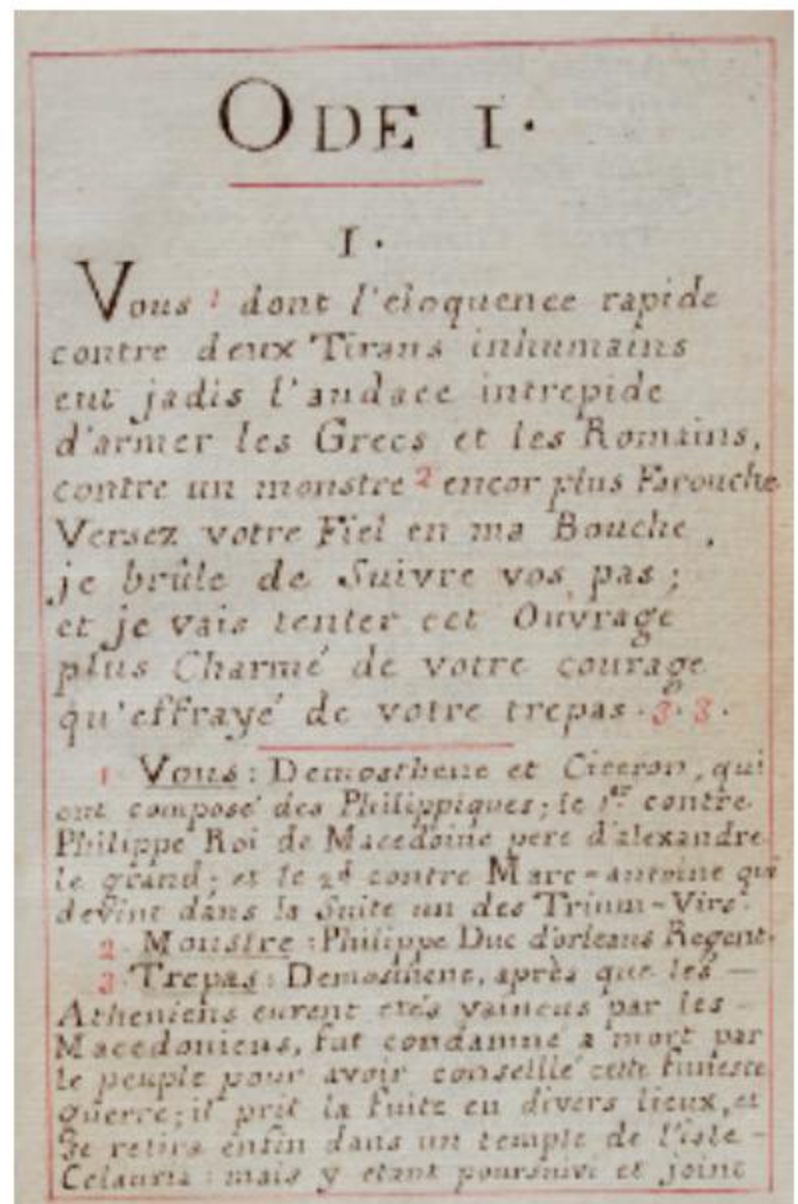 ODE I.
I.
Vous 1 dont l'eloquence rapide
contre deux Tirans inhumains
eut jadis l'audace intrepide
d'armer les Grecs et les Romains,
contre un monstre 2 encor plus Farouche
Versez votre Fiel en ma Bouche,
je brûle de Suivre vos pas;
et je vais tenter cet Ouvrage
plus Charmé de votre courage
qu'effrayé de votre trepas. 3. 3.
1 Vous: Demosthene et Ciceron, qui
ont composé des Philippiques; le 1er contre
Philippe Roi de Macedoine pere d'alexandre
le grand; et le 2d contre Marc-antoine qui
devint dans la Suite un des Trium-Virs.
2 Monstre: Philippe Duc d'orleans Regent.
3 Trepas: Demosthene, après que les —
Atheniens eurent etés vaincus par les -
Macedoniens, fut condamné a mort par
le peuple pour avoir conseillé cette funeste
guerre; il prit la fuite en divers lieux, et
Se retira enfin dans un temple de l'isle -
Celauria: mais y etant poursuivi et joint